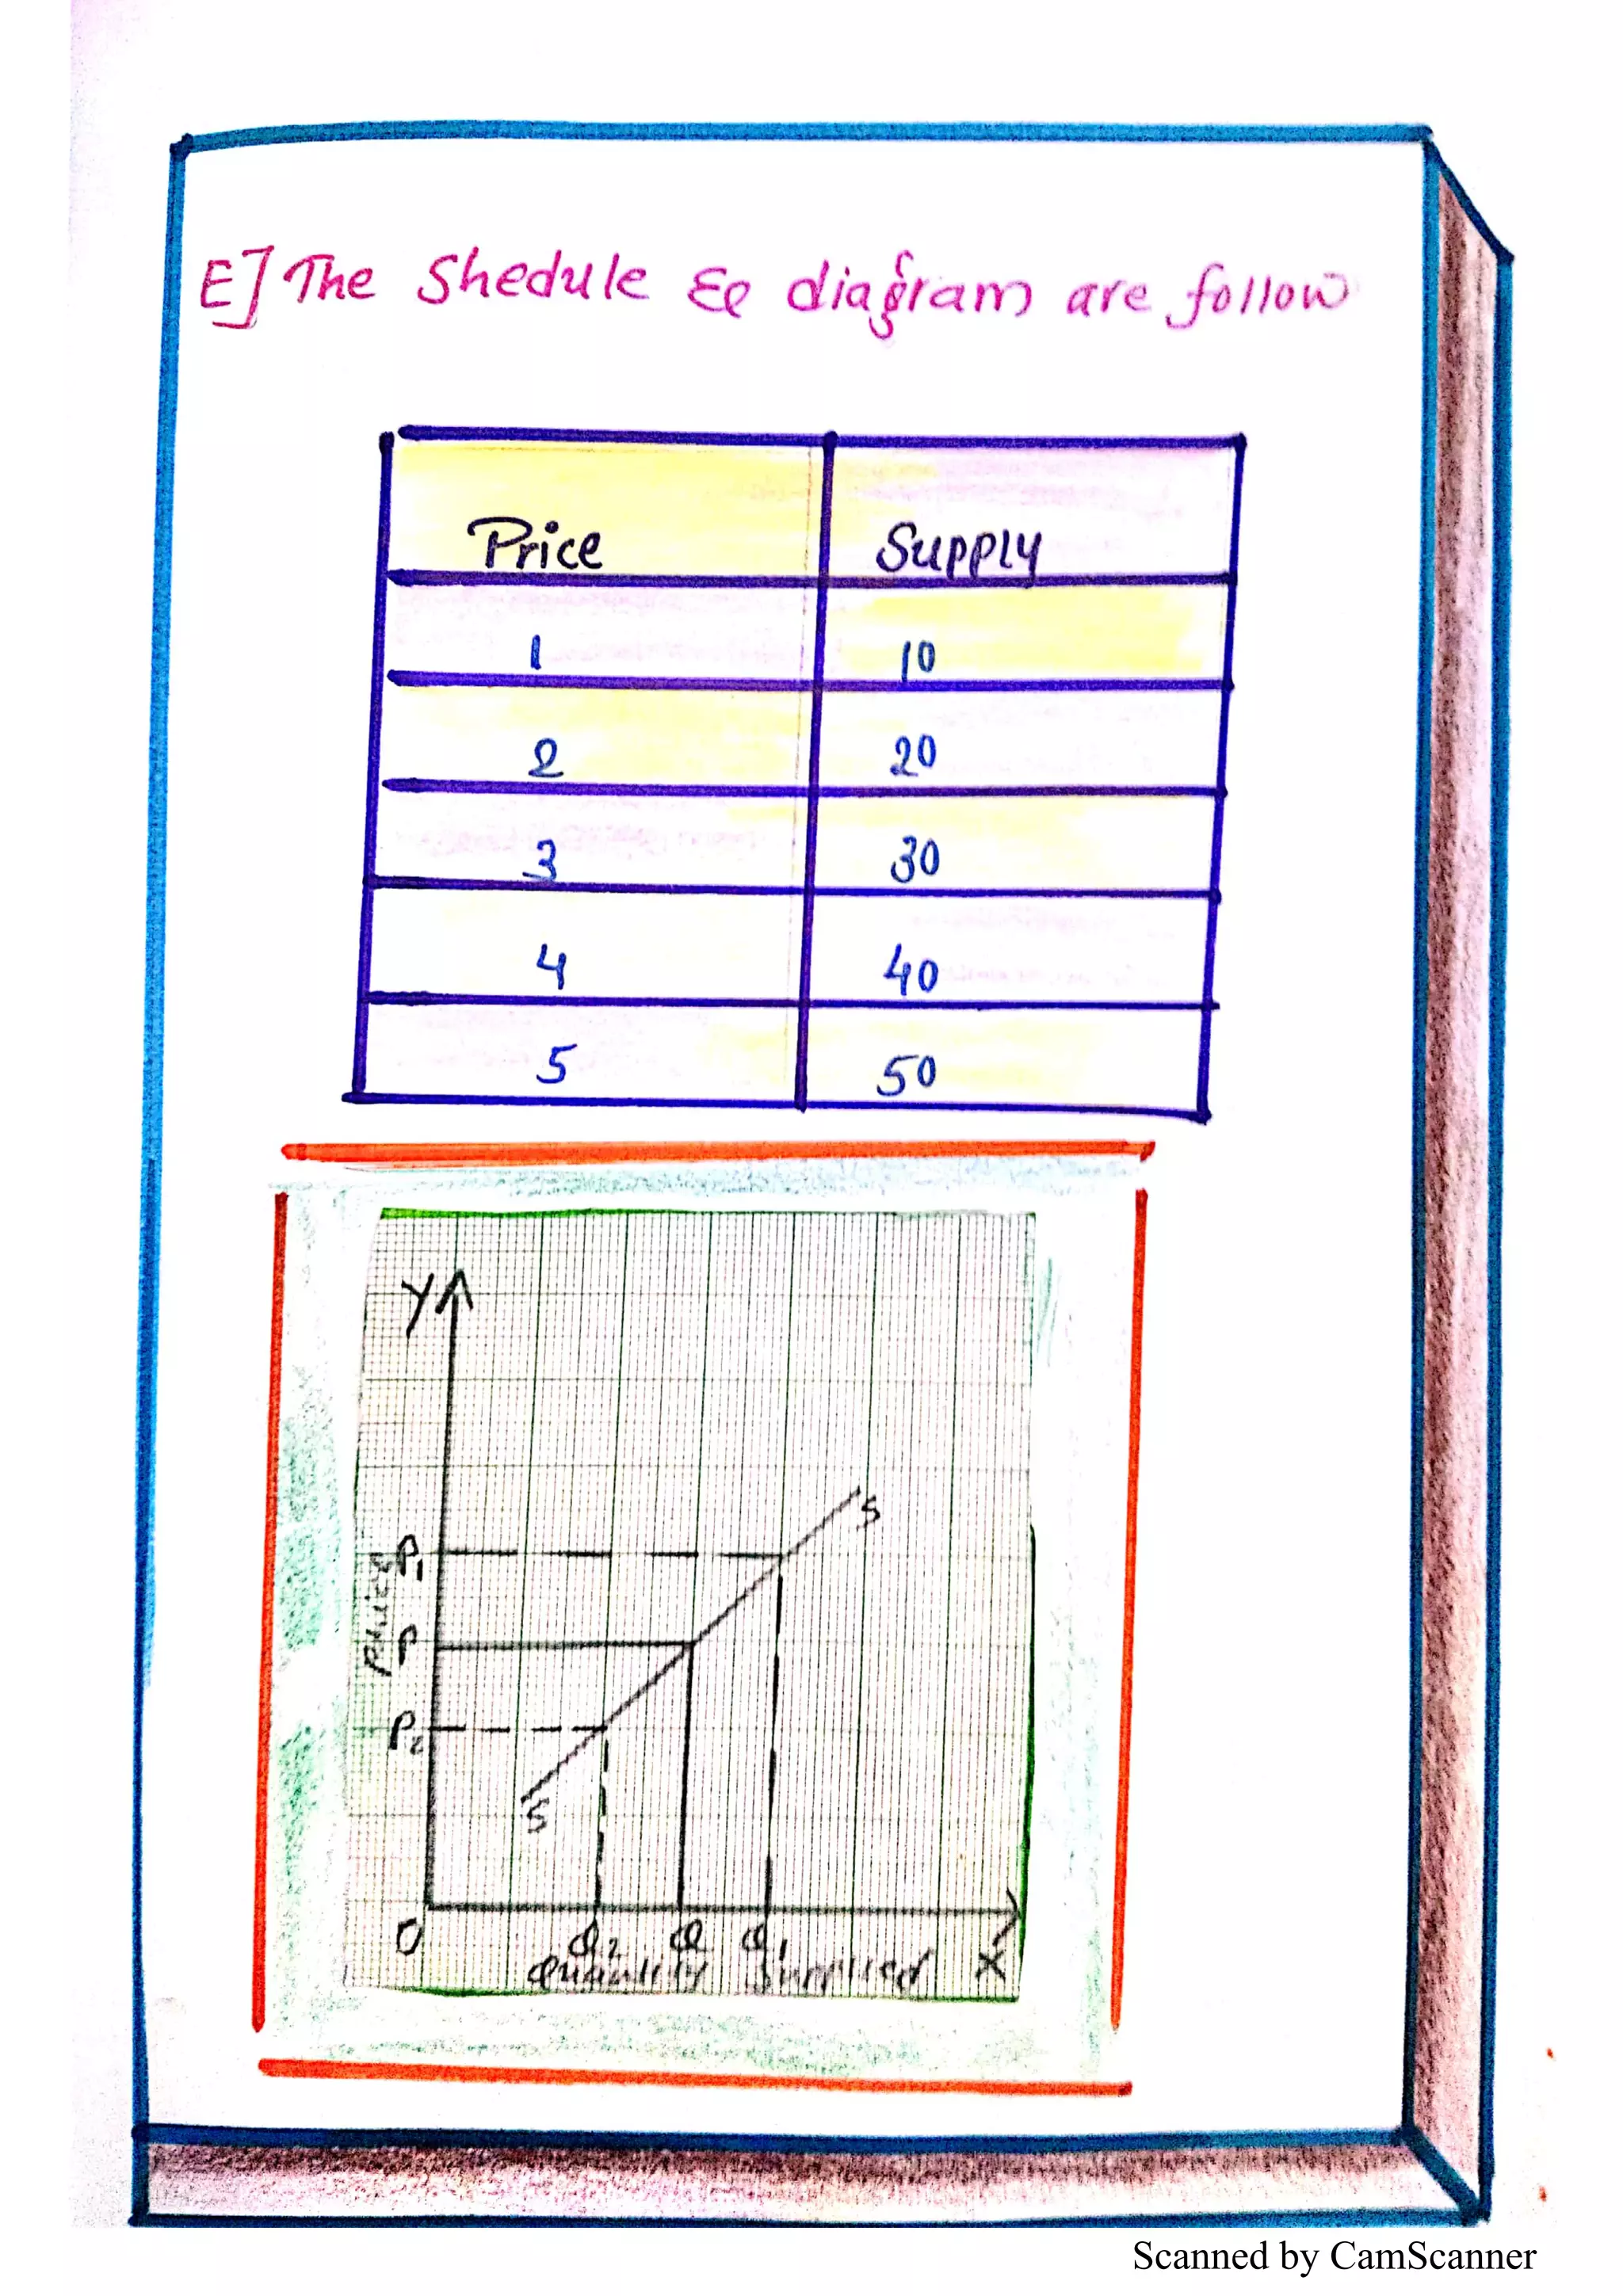 E] The Shedule & diagram are follow
Price Supply
1 10
2 20
3 30
4 40
5 50
Y
S
P1
Price
P
P2
S
O Q2 Q Q1
Quantity Supplied X
Scanned by CamScanner